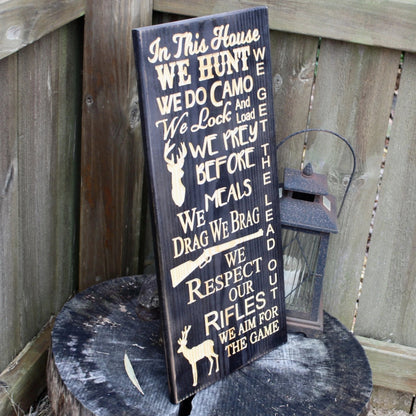 In This House
WE HUNT
WE DO CAMO
We Lock And Load
WE PREY
BEFORE
MEALS
WE
DRAG WE BRAG
WE
RESPECT
OUR
RIFLES
WE AIM FOR
THE GAME
WE GET THE LEAD OUT